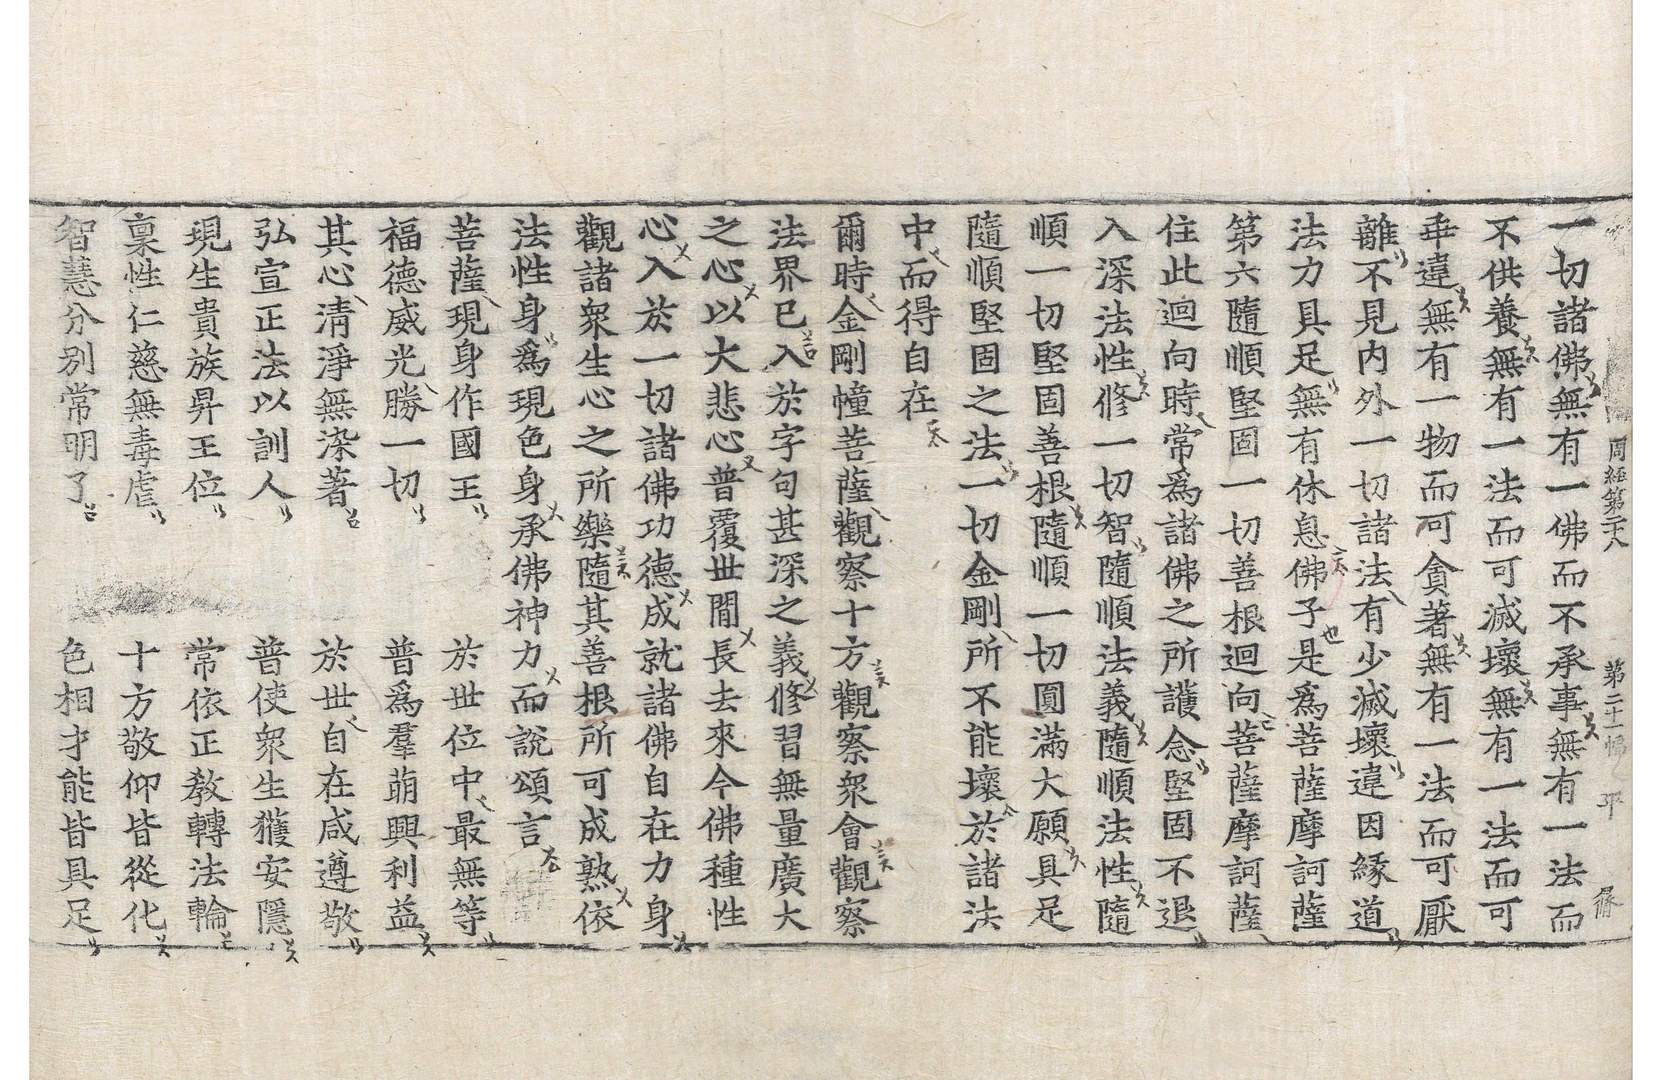 周経第二十八 第二十一幅 平
一切諸佛無有一佛而不承事無有一法而
不供養無有一法而可滅壞無有一法而可
乖違無有一物而可貪著無有一法而可厭
離不見內外一切諸法有少滅壞違因緣道
法力具足無有休息佛子是爲菩薩摩訶薩
第六隨順堅固一切善根迴向菩薩摩訶薩
住此迴向時常爲諸佛之所護念堅固不退
入深法性修一切智隨順法義隨順法性隨
順一切堅固善根隨順一切圓滿大願具足
隨順堅固之法一切金剛所不能壞於諸法
中而得自在
爾時金剛幢菩薩觀察十方觀察衆會觀察
法界已入於字句甚深之義修習無量廣大
之心以大悲心普覆世間長去來今佛種性
心入於一切諸佛功德成就諸佛自在力身
觀諸衆生心之所樂隨其善根所可成熟依
法性身爲現色身承佛神力而說頌言
菩薩現身作國王 於世位中最無等
福德威光勝一切 普爲羣萌興利益
其心清淨無染著 於世自在咸遵敬
弘宣正法以訓人 普使衆生獲安隱
現生貴族昇王位 常依正教轉法輪
稟性仁慈無毒虐 十方敬仰皆從化
智慧分別常明了 色相才能皆具足